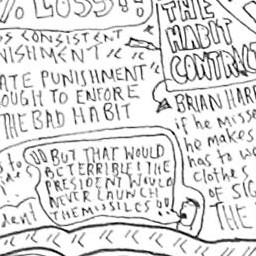 % LOSS??
THE
HABIT
CONTRACT
S CONSISTENT
NISHMENT
ATE PUNISHMENT
OUGH TO ENFORE
THE BAD HABIT
BRIAN HAR
if he misse
he makes
has to we
clothes
OF SIG
THE
BUT THAT WOULD
BE TERRIBLE! THE
PRESIDENT WOULD
NEVER LAUNCH
THE MISSILES
s to
dent